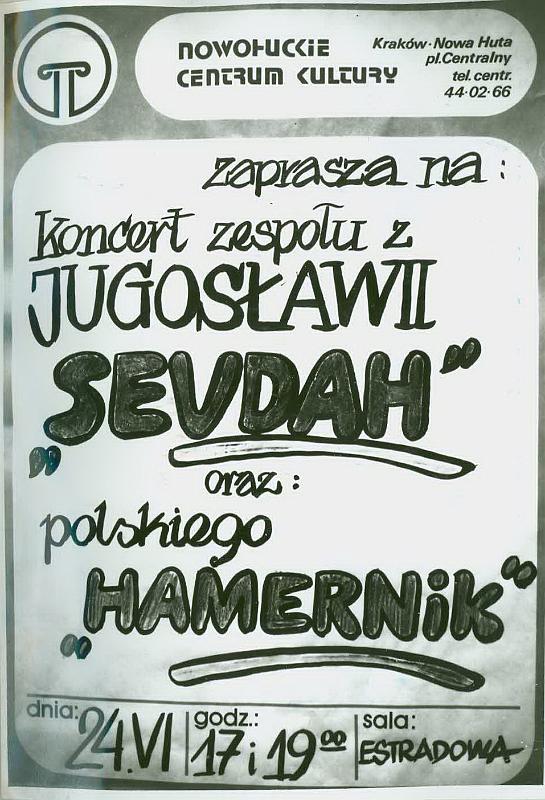 NOWOHUCKIE
CENTRUM KULTURY
Kraków·Nowa Huta
pl.Centralny
tel.centr.
44·02·66
zaprasza na :
Koncert zespołu z
JUGOSŁAWII
„SEVDAH”
oraz :
polskiego
„HAMERNiK”
dnia: 24.VI
godz.: 17 i 19 00
sala: ESTRADOWA